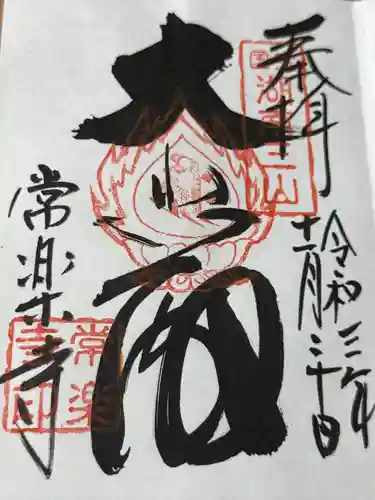 奉拝
令和三年
十一月三十日
大悲閣
常楽寺
常楽
寺印